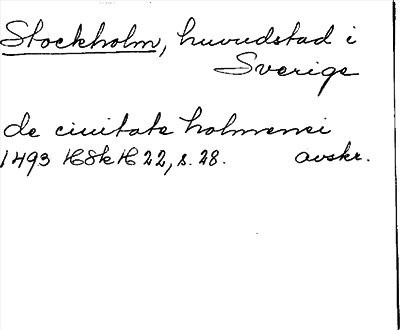 Stockholm, huvudstad i
Sverige
de ciuitate holmensi
1493 HSkH 22, s. 28. avskr.